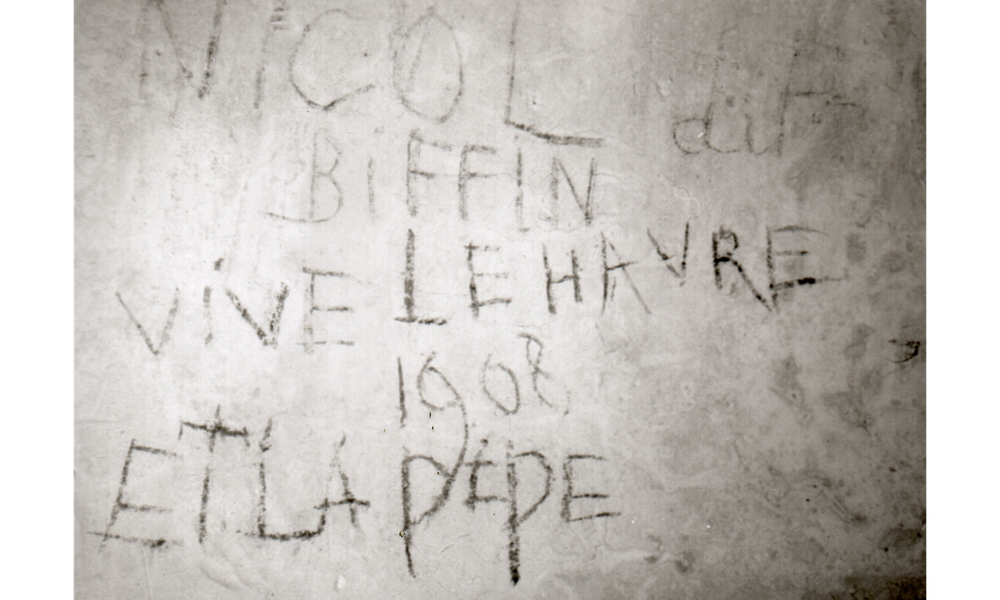 NiCOL dit
BiFFIN
ViVE LE HAVRE
1908
ET LA PéPE